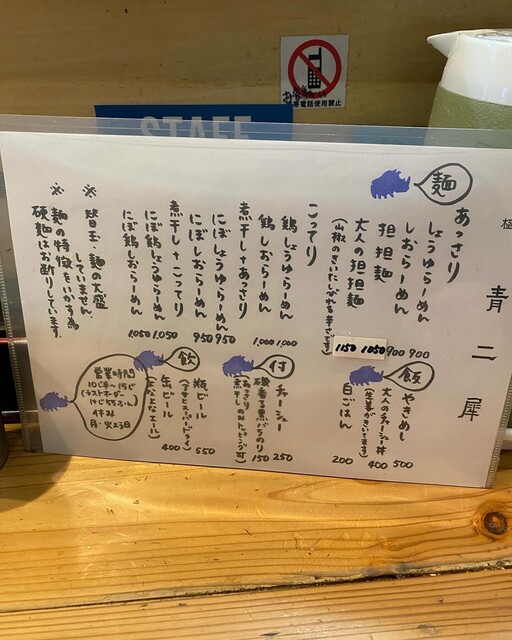 お食事中
携帯電話使用禁止
STAFF
極
青二犀
麺
あっさり
しょうゆらーめん 900
しおらーめん 900
担担麺 1050
大人の担担麺 1150
(山椒のきいたしびれる辛さです)
こってり
鶏しょうゆらーめん 1,000
鶏しおらーめん 1,000
煮干し+あっさり
にぼしょうゆらーめん 950
にぼしおらーめん 950
煮干し+こってり
にぼ鶏しょうゆらーめん 1,050
にぼ鶏しおらーめん 1,050
※ 替玉・麺の大盛
していません。
※ 麺の特徴をいかす為
硬麺はお断りしています。
飯
やきめし 500
大人のチャーシュー丼 400
(生姜がきいてます)
白ごはん 200
付
チャーシュー 250
磯香る黒バラのり 150
(あっさり
煮干しのみトッピング可)
飲
瓶ビール 550
(アサヒスーパードライ)
缶ビール 400
(よなよなエール)
営業時間
10じ半~15じ
(ラストオーダー
休み
月・火よう日